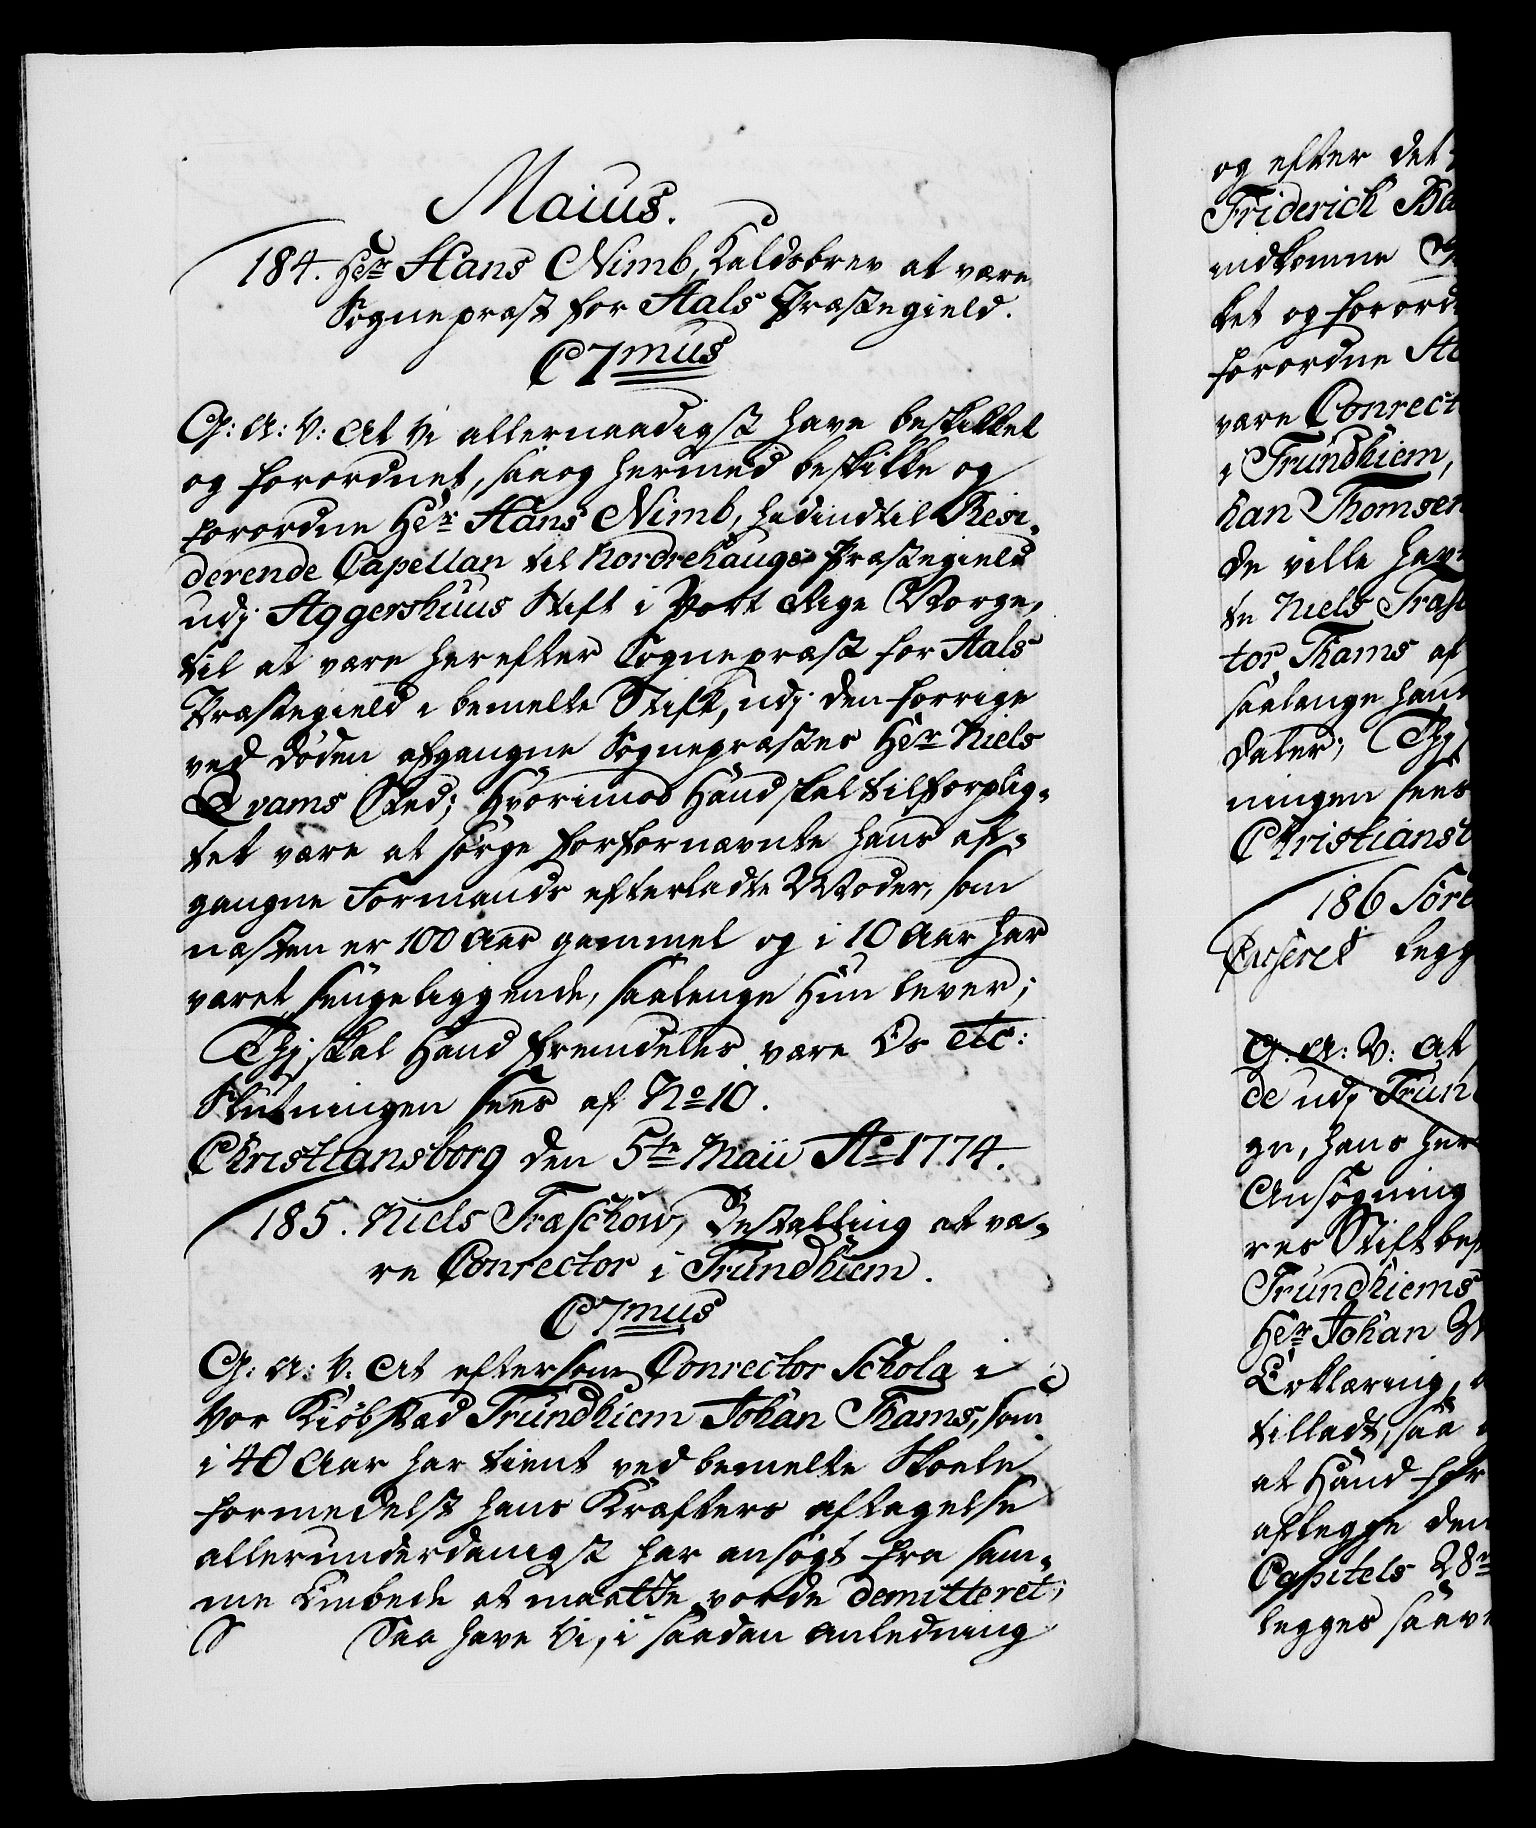 Maius.
184. Hr Hans Nimb, Kaldsbrev at være
Sognepræst for Aals Præstegield.
C7mus
G: A: V: At Vi allernaadigst have beskikket
og forordnet, saa og hermed beskikke og
forordne Hr Hans Nimb, hidindtil Resi-
derende Capellan til Nordrehaugs Præstegield
udj Aggershuus Stift i Vort Rige Norge,
til at være herefter Sognepræst for Aals
Præstegield i bemelte Stift, udj den forrige
ved Døden afgangne Sognepræstes Hr Niels
Qvams Sted; Hvorimod Hand skal tilforplig-
tet være at sørge for fornævnte hans af-
gangne Formands efterladte Moder, som
næsten er 100 Aar gammel og i 10 Aar har
været sengeliggende, saalenge Hun lever;
Thj skal Hand fremdeles være Os etc:
Slutningen sees af No 10.
Christiansborg den 5te Maii Ao 1774.
185. Niels Træschow, Bestalling at væ-
re Conrector i Trundhiem.
C7mus
G: A: V: At eftersom Conrector Scholæ i
Vor Kiøbstæd Trundhiem Johan Thams, som
i 40 Aar har tient ved bemelte Skole
formedelst hans Kræfters aftagelse
allerunderdanigst har ansøgt fra sam-
me Embede at maatte vorde demitteret;
S Saa have Vi, i saadan Anledning
og efter det
Friderich
indkomne
ket og forord
forordne
være Conrect
i Trundhiem,
han Thomsen
de ville have
te Niels Træs
tor Thams af
saalenge hand
daler; Thj
ningen sees
Christiansb
186 Søre
Casseret legg
G: A: V: At
de udj Trun
ge, hans her
Ansøgning
res Stiftbef
Trundhiems
Hr Johan
Erklæring,
tilladt, saa
at Hand for
aflegge den
Capitels 28
legges saave